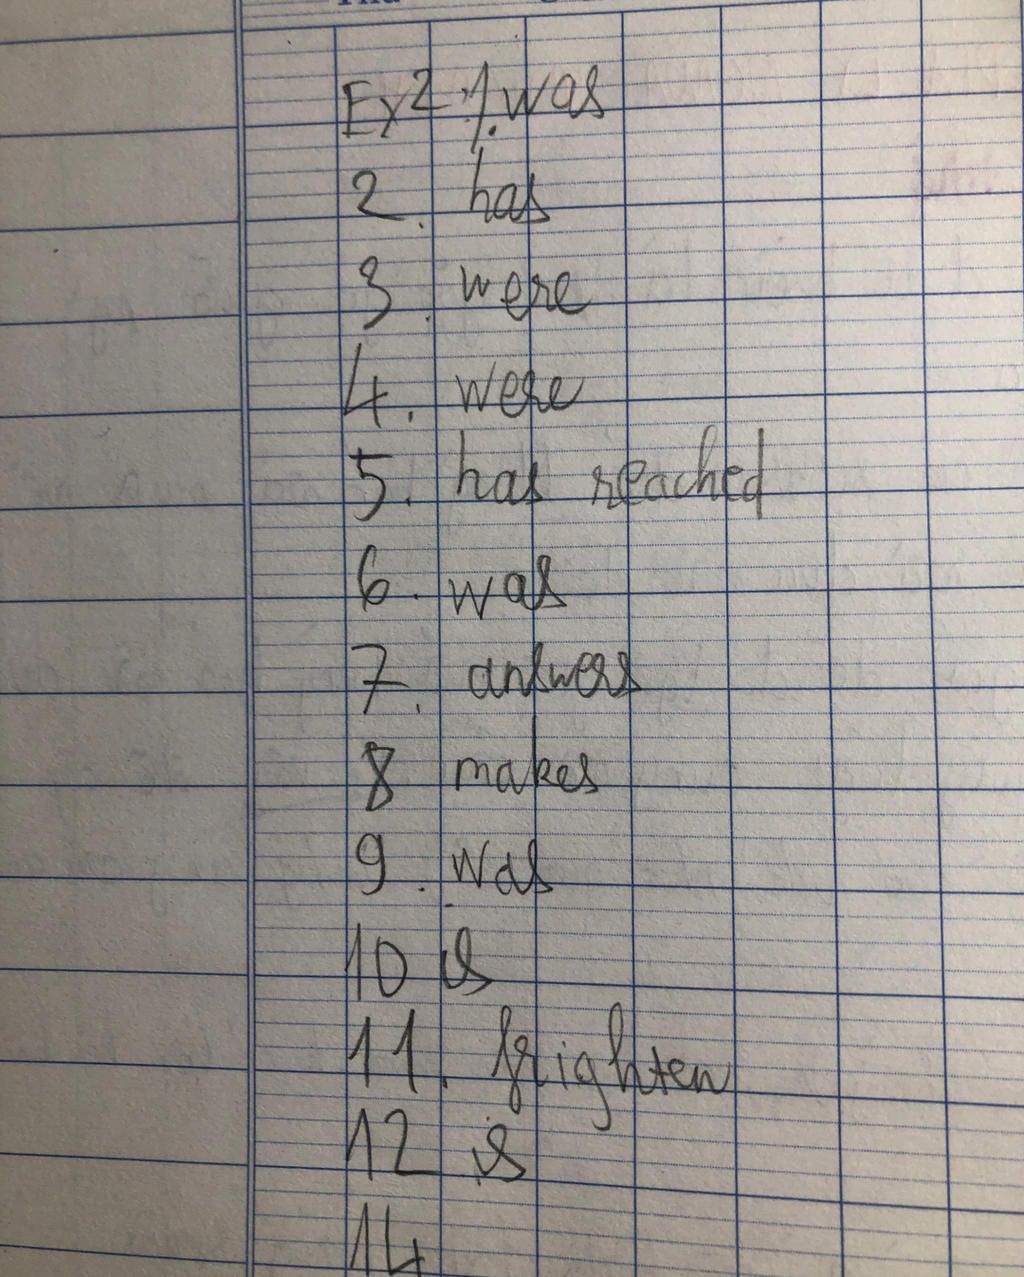 Ex2 1. was
2. has
3. were
4. were
5. has reached
6. was
7. answers
8 makes
9. was
10 is
11. frighten
12 is
14